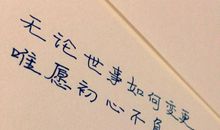 无论世事如何变更
唯愿初心不负